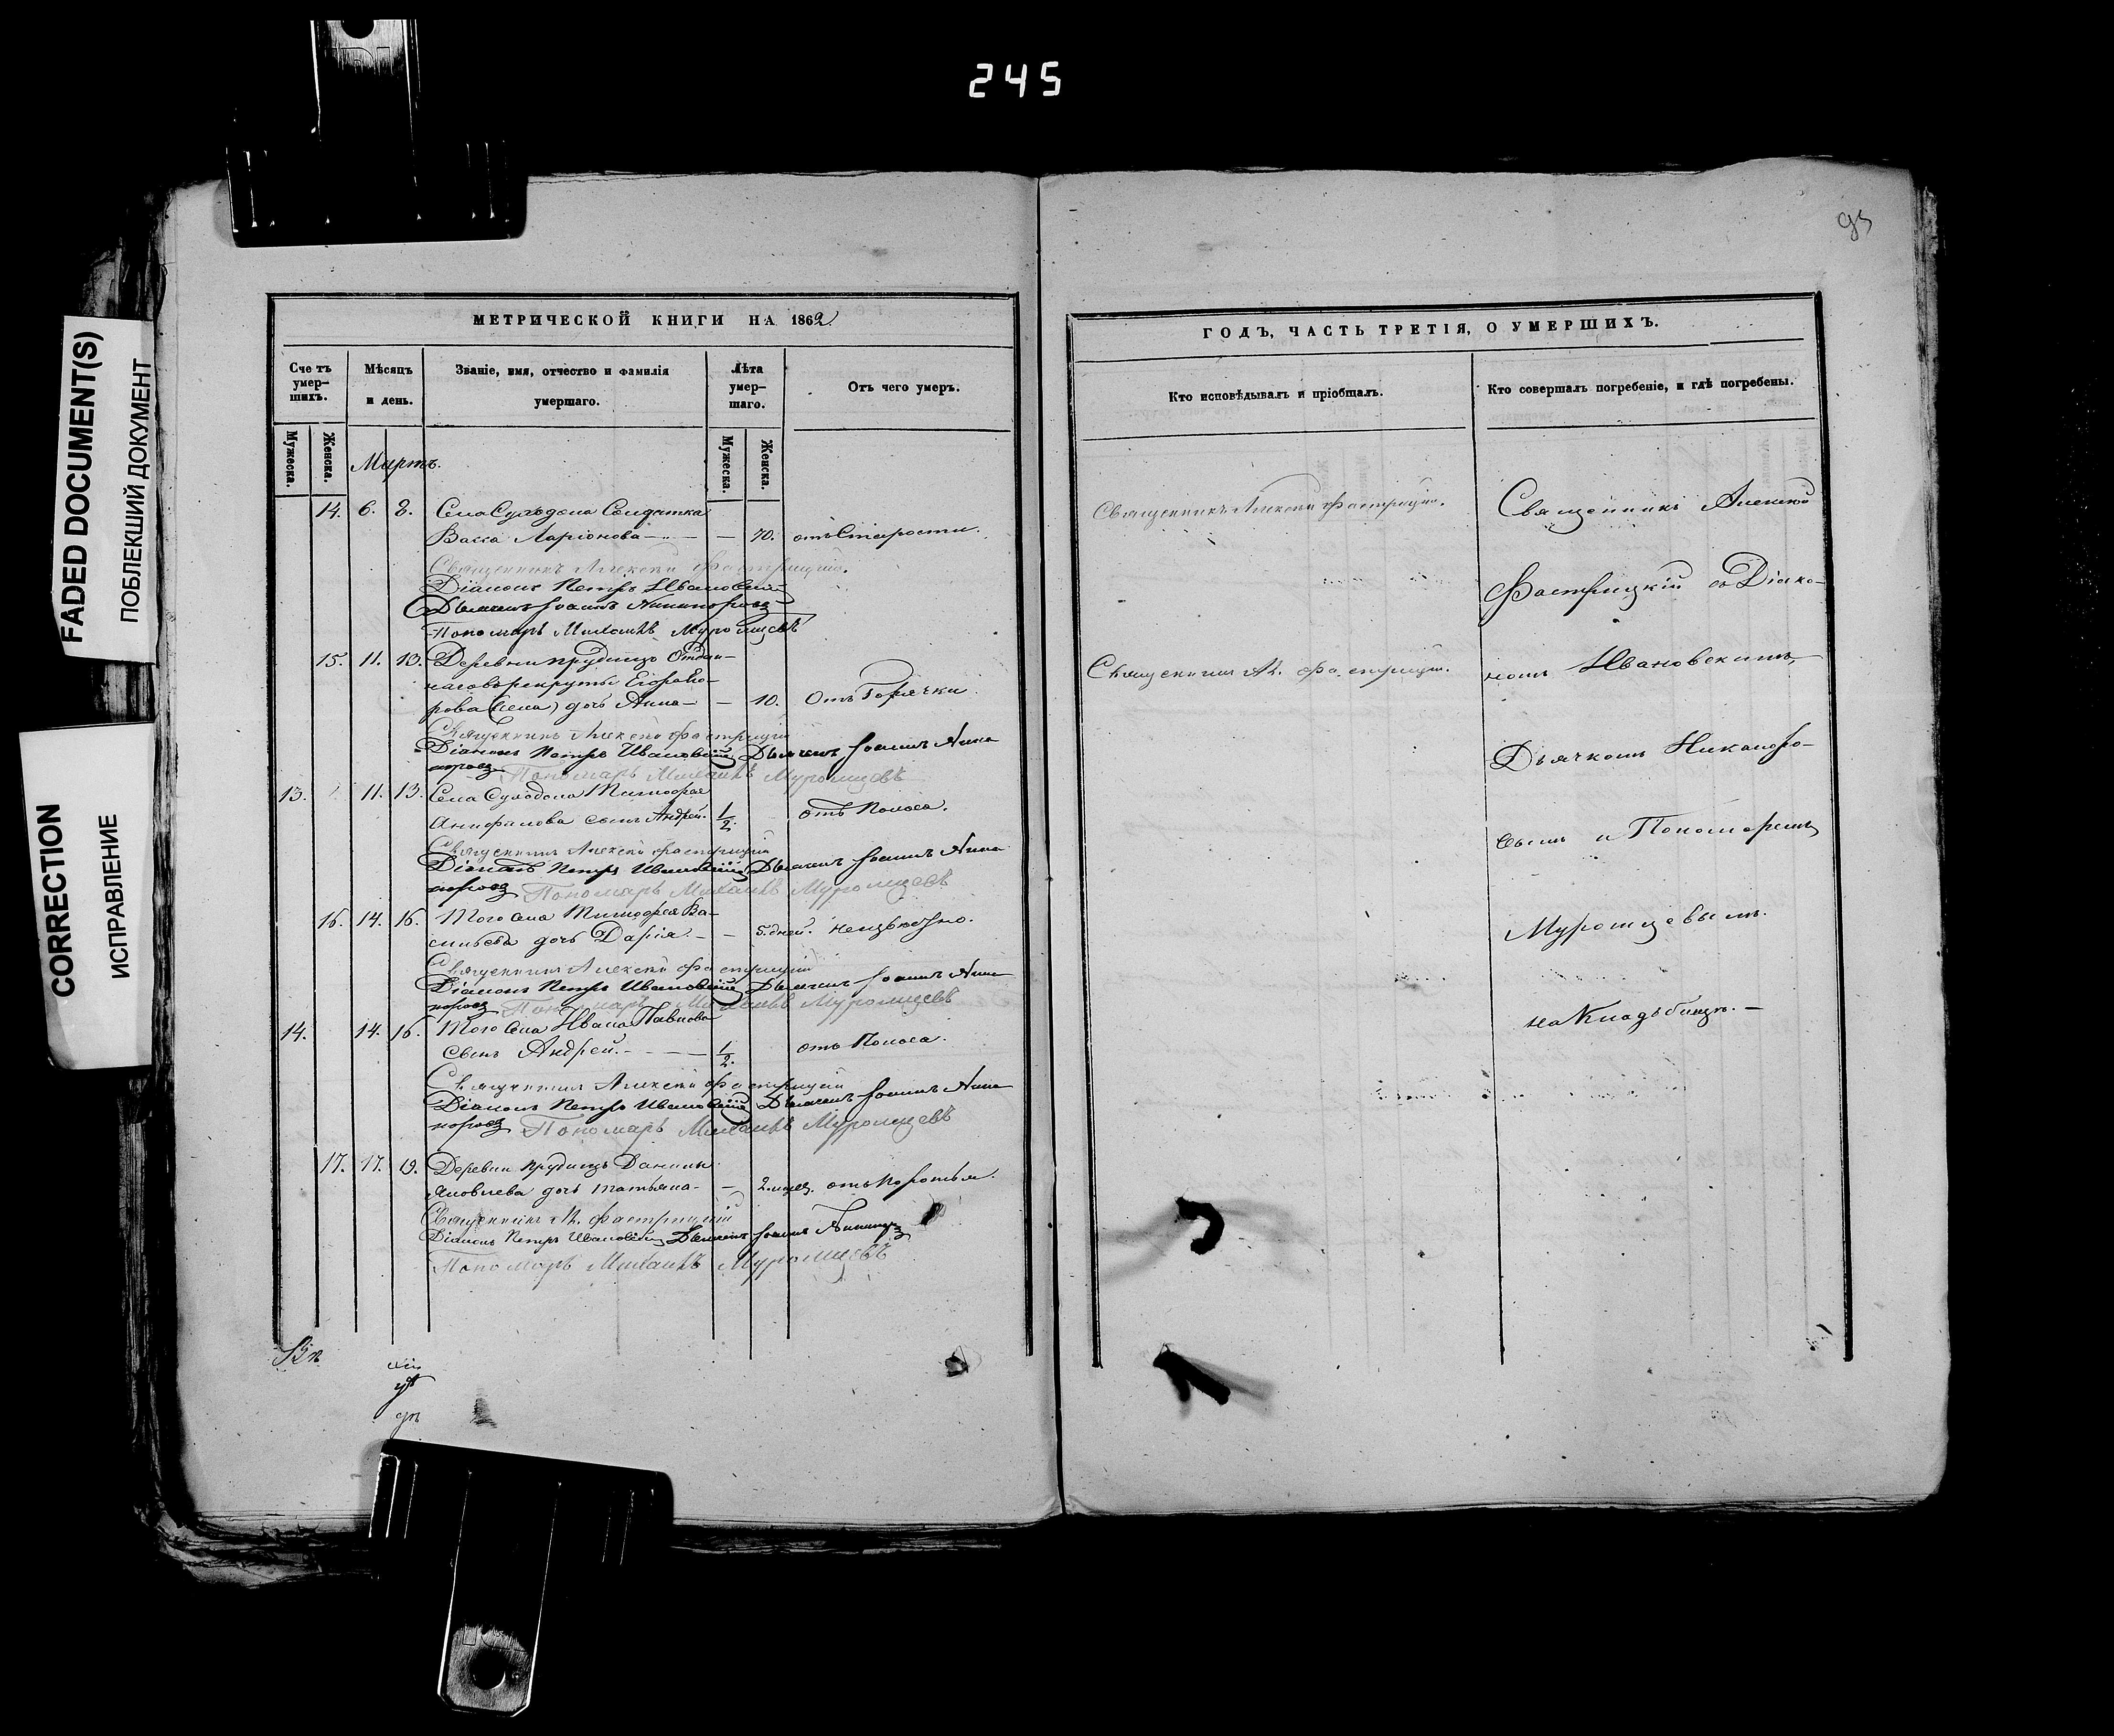 245
95
FADED DOCUMENT(S)
ПОБЛЕКШИЙ ДОКУМЕНТ
CORRECTION
ИСПРАВЛЕНИЕ
МЕТРИЧЕСКОЙ КНИГИ НА 1862
Сче тъ умер- шихъ.
Мѣсяцъ и день.
Званіе, имя, отчество и фамилія умершаго.
Лѣта умер- шаго.
Отъ чего умеръ.
Мужеска.
Женска.
Мужеска.
Женска.
Мартъ.
14. 6. 8. Села Суходола Солдатка
Васса Ларіонова — — 70. отъ Старости.
Священникъ Алексѣй Фастрицкій.
Діаконъ Петръ Ивановскій
Дьячекъ Іоаннъ Никаноровъ
Пономарь Михаилъ Муромцевъ
15. 11. 13. Деревни Прудищъ
рекруты Егора
дочь Анна — — 10. Отъ Горячки.
Священникъ Алексѣй Фастрицкій
Діаконъ Петръ Ивановскій Дьячекъ Іоаннъ Ника
норовъ Пономарь Михаилъ Муромцевъ
13. 11. 13. Села Суходола Тимофея
сынъ Андрей. 1/2. отъ Поноса.
Священникъ Алексѣй Фастрицкій
Діаконъ Петръ Ивановскій Дьячекъ Іоаннъ Ника
норовъ Пономарь Михаилъ Муромцевъ
16. 14. 16. Того Села Тимофея Ва-
сильева дочь Дарія. — — 5. дней. неизвѣстно.
Священникъ Алексѣй Фастрицкій
Діаконъ Петръ Ивановскій Дьячекъ Іоаннъ Ника
норовъ Пономарь Михаилъ Муромцевъ
14. 14. 16. Того Села Ивана Павлова
Сынъ Андрей. — — 1/2. отъ Поноса.
Священникъ Алексѣй Фастрицкій
Діаконъ Петръ Ивановскій Дьячекъ Іоаннъ Ника
норовъ Пономарь Михаилъ Муромцевъ
17. 17. 19. Деревни Прудищъ Данилы
Яковлева дочь Татьяна. — 2. мѣсяц. отъ Коротья.
Священникъ Ал. Фастрицкій
Діаконъ Петръ Ивановскій Дьячекъ Іоаннъ
Пономарь Михаилъ Муромцевъ
ГОДЪ, ЧАСТЬ ТРЕТІЯ, О УМЕРШИХЪ.
Кто исповѣдывалъ и пріобщалъ.
Кто совершалъ погребеніе, и гдѣ погребены.
Священникъ Алексѣй Фастрицкій.
Священникъ Ал. Фастрицкій.
Священникъ Алексѣй
Фастрицкій съ Діако-
номъ Ивановскимъ,
Дьячкомъ Никаноро-
вымъ и Пономаремъ
Муромцевымъ.
на Кладбищѣ. —